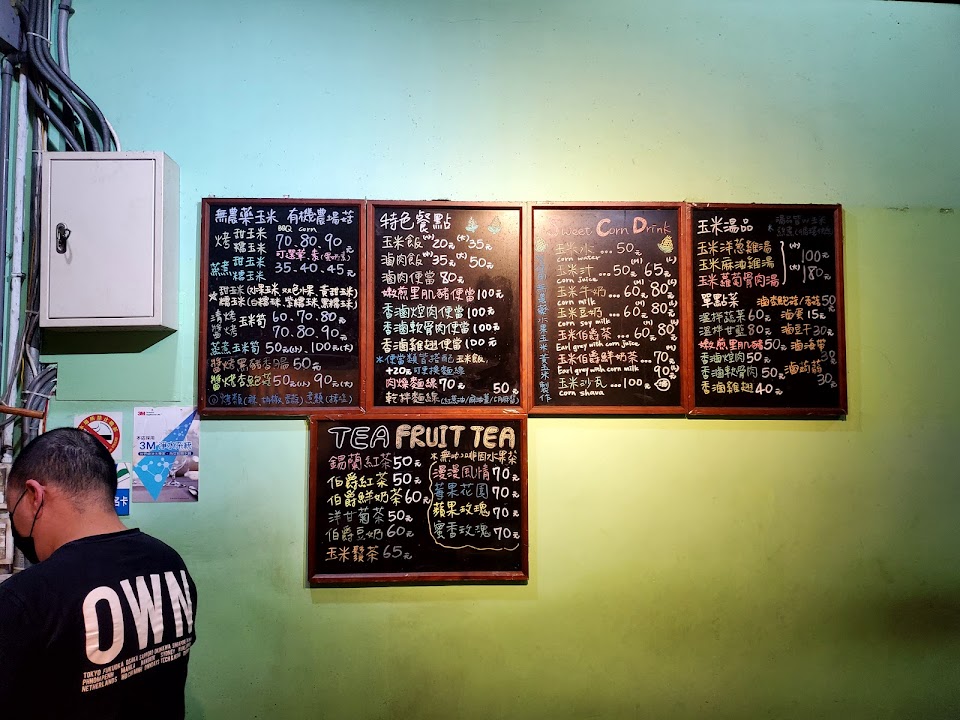 無農藥玉米 有機農場答
BBQ Corn
烤 甜玉米 糯玉米 70.80.90元
可選葷.素(蛋奶素)
蒸煮 甜玉米 糯玉米 35.40.45元
清烤 玉米筍 60.70.80元
醬烤 70.80.90元
蒸煮玉米筍 50元(小). 100元(大)
醬烤黑豬香腸 50元
醬烤杏鮑菇 50元(小) 90元(大)
特色餐點
玉米飯(小)20元(大)35元
滷肉飯(小)35元(大)50元
滷肉便當 80元
嫩煎里肌豬便當 100元
香滷焢肉便當 100元
香滷軟骨肉便當 100元
香滷雞翅便當 100元
※便當類皆搭配玉米飯,
+20元可更換麵線
肉燥麵線 70 50元
乾拌麵線
Sweet Corn Drink
玉米水 ... 50元
corn water
玉米汁 ... 50元 65元
corn juice
玉米牛奶 ... 60元 80元
corn milk
玉米豆奶 ... 60元 80元
corn soy milk
玉米伯爵茶 ... 60元 80元
Earl grey with corn juice
玉米伯爵鮮奶茶 ... 70元 90元
Earl grey with corn milk
玉米沙瓦 ... 100元
corn shava
玉米湯品
玉米洋蔥雞湯
玉米麻油雞湯
玉米蘿蔔骨肉湯
(小) 100元
(大) 180元
單點菜
溫拌蔬果 60元
溫拌甘藍 80元
嫩煎里肌豬 50元
香滷焢肉 50元
香滷軟骨肉 50元
香滷雞翅 40元
滷鮑菇/香菇 50元
滷蛋 15元
滷豆干 30元
滷海帶 30元
滷蒟蒻 30元
TEA FRUIT TEA
錫蘭紅茶 50元
伯爵紅茶 50元
伯爵鮮奶茶 60元
洋甘菊茶 50元
伯爵豆奶 60元
玉米鬚茶 65元
※無咖啡因水果茶
漫漫風情 70元
莓果花園 70元
蘋果玫瑰 70元
蜜香玫瑰 70元
3M
OWN
TOKYO FUKUOKA OSAKA SAPPORO OKINAWA
PHNOMPENH MANILA BANGKOK SYDNEY
NETHERLANDS